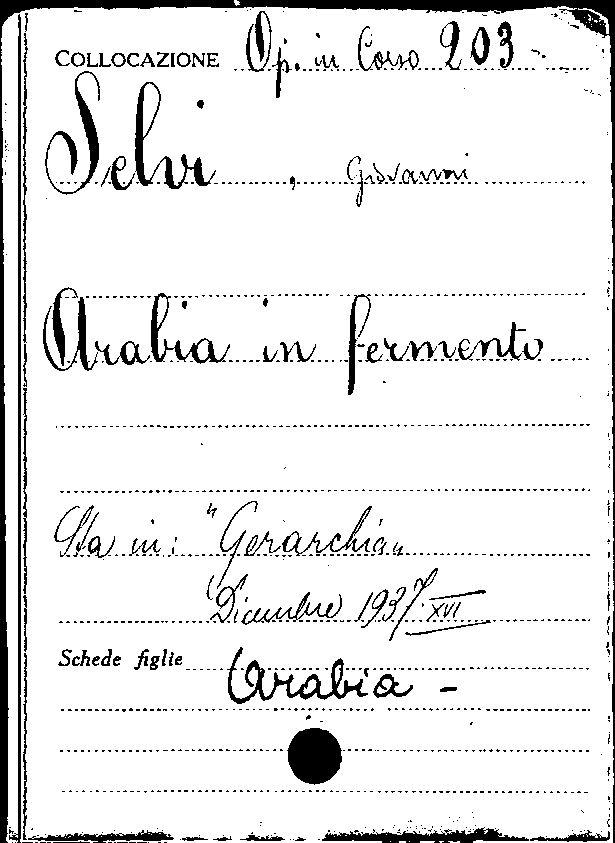 COLLOCAZIONE Op. in Corso 203 -
Selvi, Giovanni
Arabia in fermento
Sta in: "Gerarchia"
Dicembre 1937. XVI
Schede figlie Arabia -